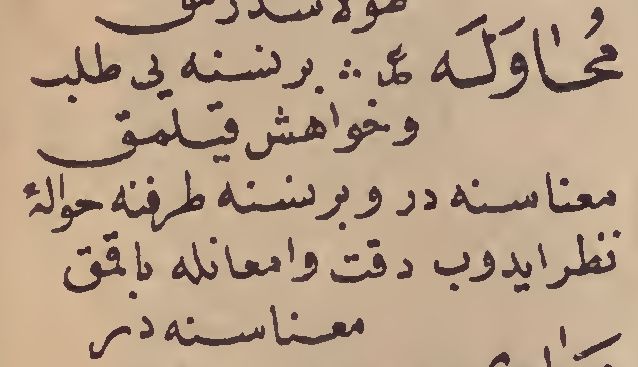 مُحَاوَلَه ع بر نسنه يى طلب
وخواهش قيلمق
معناسنه در و بر نسنه طرفنه حوالۀ
نظر ايدوب دقت وامعانله باقمق
معناسنه در